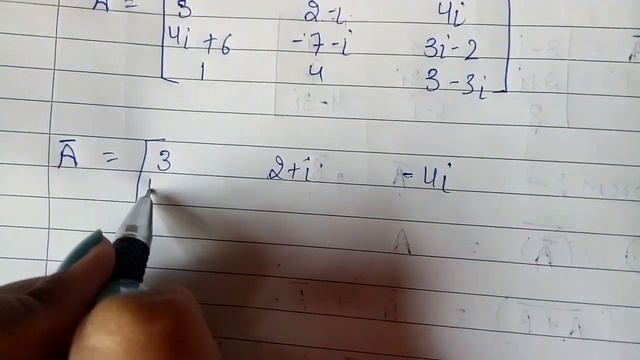 A = 3 2-i 4i
4i+6 -7-i 3i-2
1 4 3-3i
Ā = 3 2+i -4i